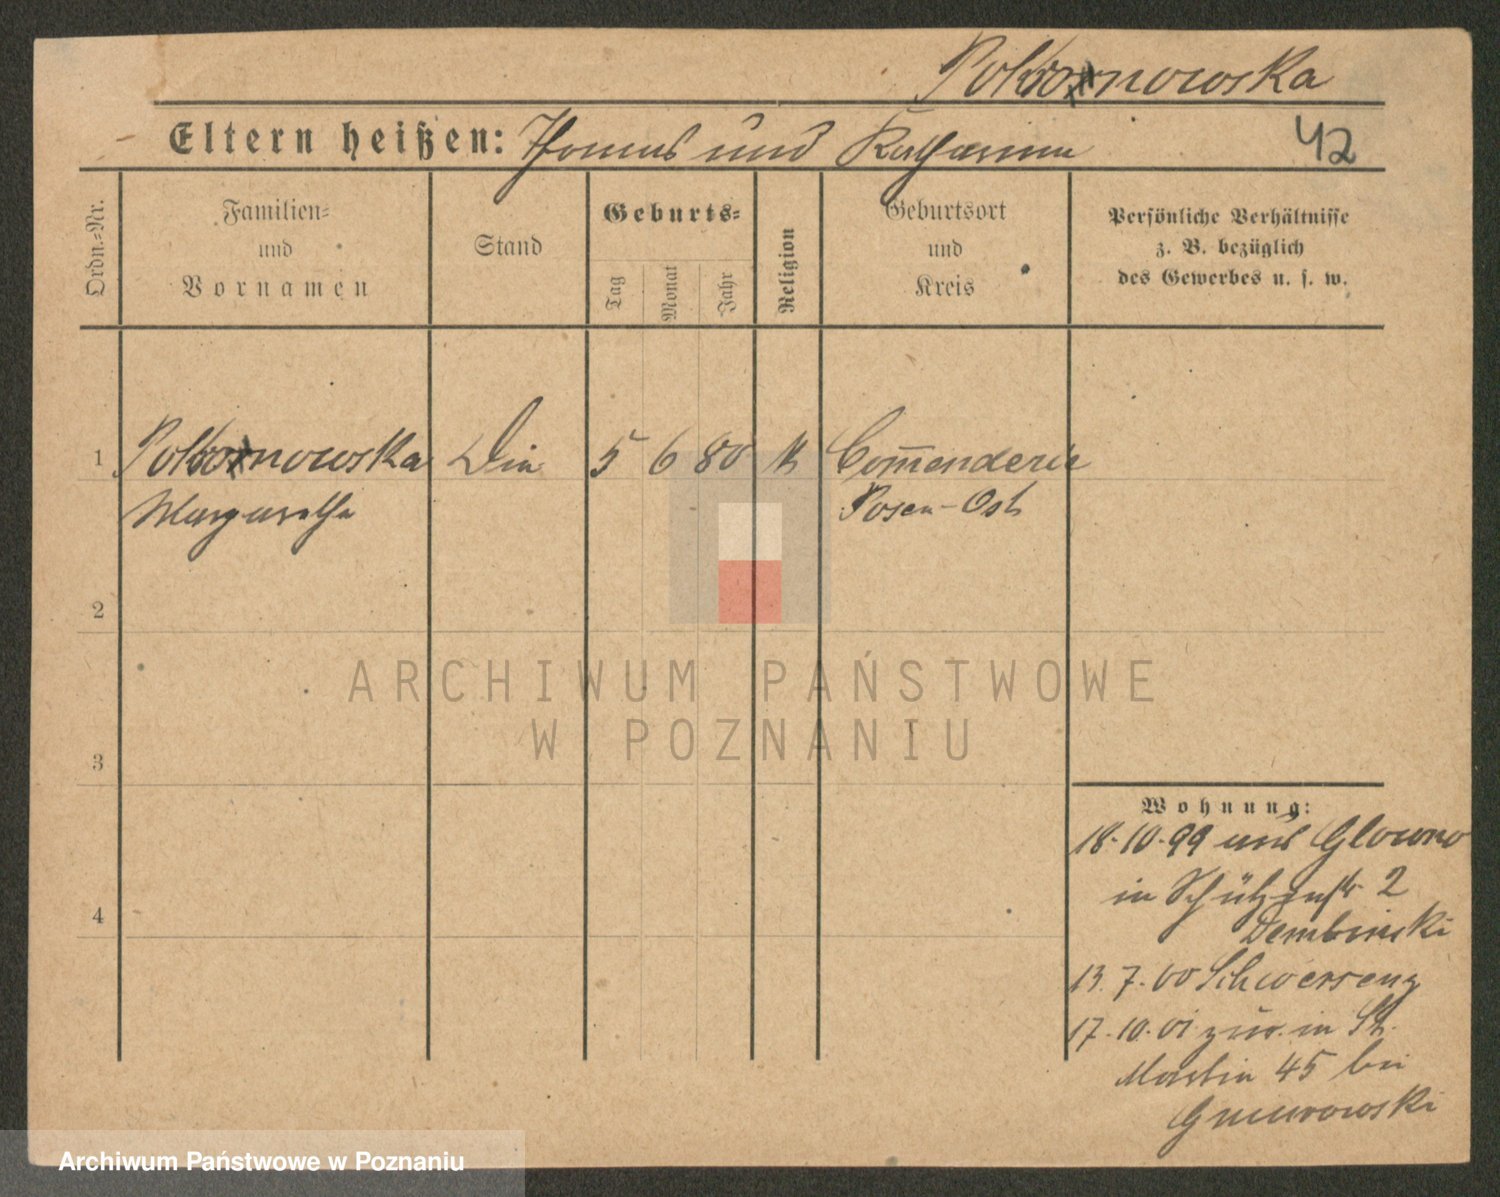 Pokoxnowska
Eltern heißen: Thomas und Katharina
42
Ordn.-Nr.
Familien-
und
Vornamen
Stand
Geburts-
Tag
Monat
Jahr
Religion
Geburtsort
und
Kreis
Persönliche Verhältnisse
z. B. bezüglich
des Gewerbes u. s. w.
1 nowska Din 5 6 80 k Com̅enderie
Margarethe Posen-Ost
2
3
4
Wohnung:
18.10.99 aus Glowno
in Schützenstr 2
Dembinski
13.7.00 Schwersenz
17.10.01 zur. in St.
Martin 45 bei
Gmurowski
ARCHIWUM PAŃSTWOWE
W POZNANIU
Archiwum Państwowe w Poznaniu